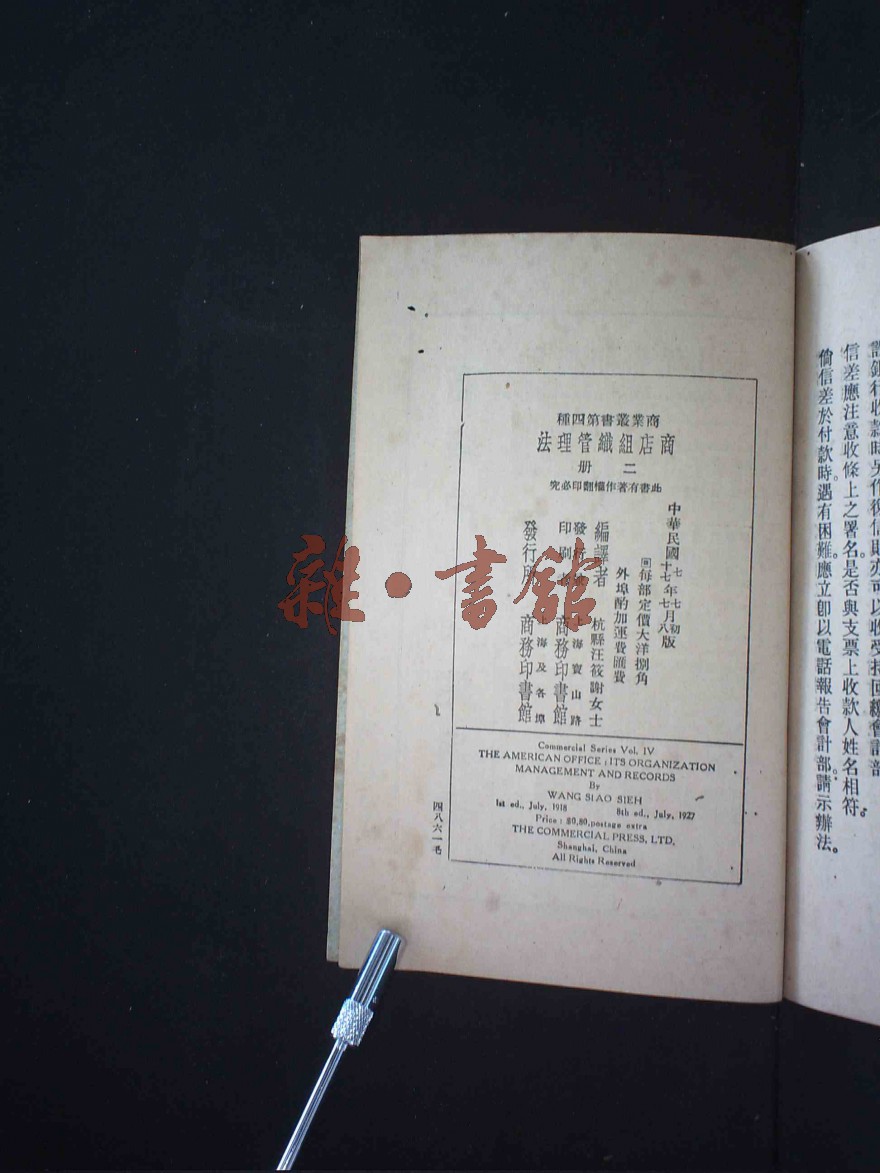 商業叢書第四種
商店組織管理法
二册
此書有著作權翻印必究
中華民國七年七月初版
十七年七月八版
每部定價大洋捌角
外埠酌加運費匯費
編譯者 杭縣汪筱謝女士
上海寶山路
商務印書館
發行所 上海及各埠
商務印書館
Commercial Series Vol. IV
THE AMERICAN OFFICE; ITS ORGANIZATION
MANAGEMENT AND RECORDS
By
WANG SIAO SIEH
1st ed., July, 1918 8th ed., July, 1927
Price: $0.80, postage extra
THE COMMERCIAL PRESS, LTD.
Shanghai, China
All Rights Reserved
四八六一
銀行收款時另作復信則亦可以收受持回繳會計部
信差應注意收條上之署名是否與支票上收款人姓名相符。
倘信差於付款時遇有困難應立卽以電話報告會計部請示辦法。
雜·書館